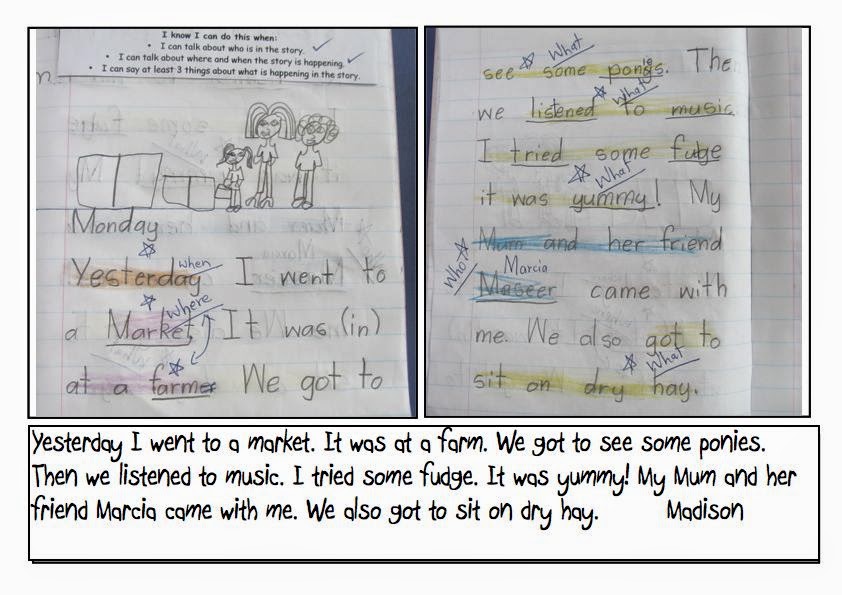 I know I can do this when:
• I can talk about who is in the story.
• I can talk about where and when the story is happening.
• I can say at least 3 things about what is happening in the story.
Monday
when
Yesterday I went to
where
a Market. It was (in)
at a farm We got to
What
see some ponies. The
What
we listened to music
I tried some fudge
What
it was yummy! My
Mum and her friend
Who Marcia
Maseer came with
me. We also got to
What
sit on dry hay.
Yesterday I went to a market. It was at a farm. We got to see some ponies.
Then we listened to music. I tried some fudge. It was yummy! My Mum and her
friend Marcia came with me. We also got to sit on dry hay. Madison